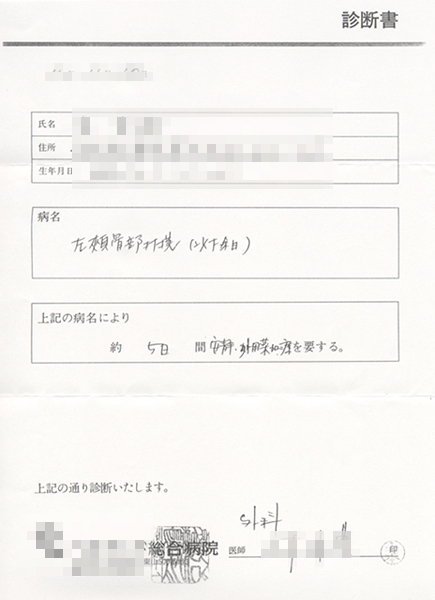 診断書
氏名
住所
生年月日
病名
左頬骨部打撲
上記の病名により
約 5日 間 安静、外用薬加療を要する。
上記の通り診断いたします。
外科
総合病院 医師 印